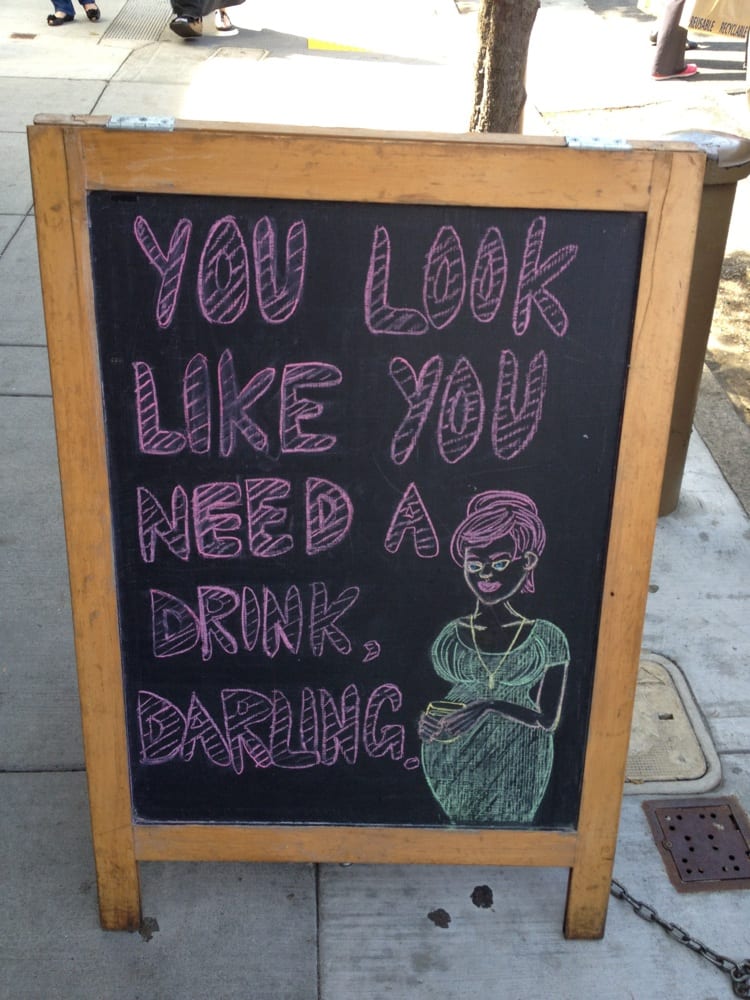 REUSABLE RECYCLABLE
YOU LOOK
LIKE YOU
NEED A
DRINK,
DARLING.